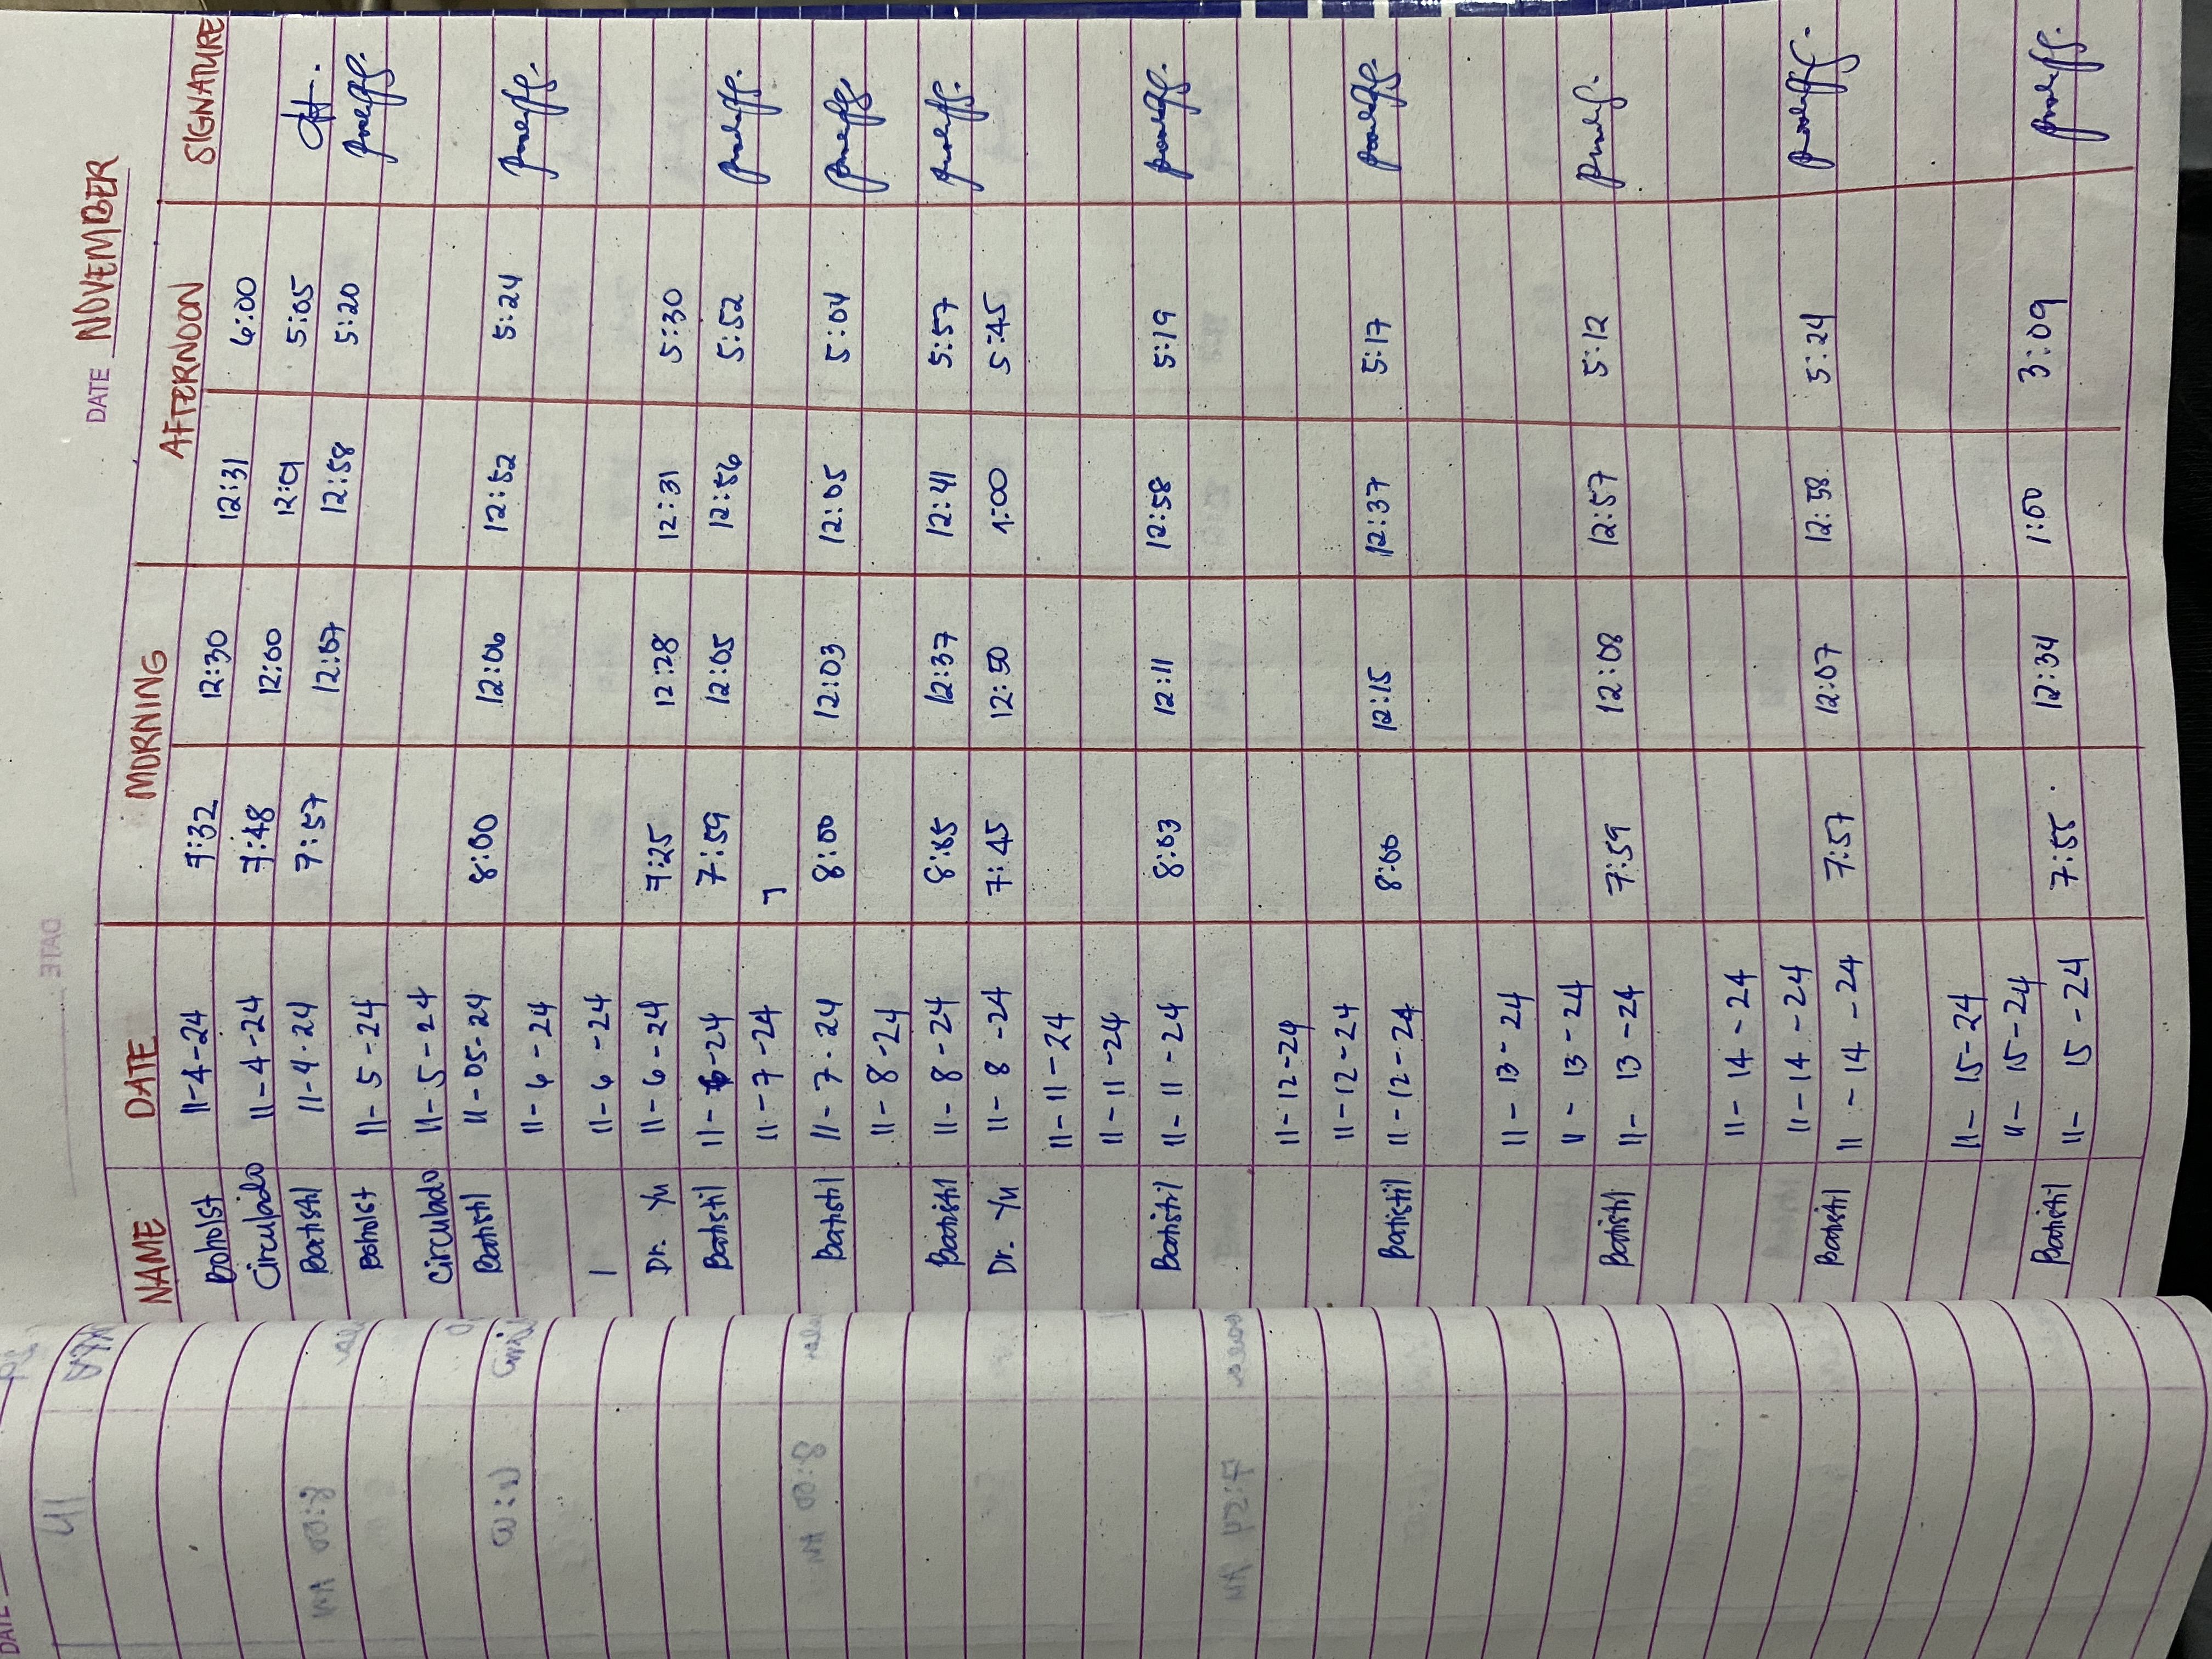 DATE NOVEMBER
NAME DATE MORNING AFTERNOON SIGNATURE
Boholst 11-4-24 7:32 12:30 12:31 6:00
Circulado 11-4-24 7:48 12:00 12:01 5:05
Batistil 11-4-24 7:57 12:07 12:58 5:20
Boholst 11-5-24
Circulado 11-5-24
Batistil 11-05-24 8:00 12:06 12:52 5:24
11-6-24
11-6-24
Dr. Yu 11-6-24 7:25 12:28 12:31 5:30
Batistil 11-6-24 7:59 12:05 12:56 5:52
11-7-24
Batistil 11-7-24 8:00 12:03 12:05 5:04
11-8-24
Batistil 11-8-24 8:05 12:37 12:41 5:57
Dr. Yu 11-8-24 7:45 12:50 1:00 5:45
11-11-24
11-11-24
Batistil 11-11-24 8:03 12:11 12:58 5:19
11-12-24
11-12-24
Batistil 11-12-24 8:00 12:15 12:37 5:17
11-13-24
11-13-24
Batistil 11-13-24 7:59 12:08 12:57 5:12
11-14-24
11-14-24
Batistil 11-14-24 7:57 12:07 12:58 5:24
11-15-24
11-15-24
Batistil 11-15-24 7:55 12:34 1:00 3:09
DATE